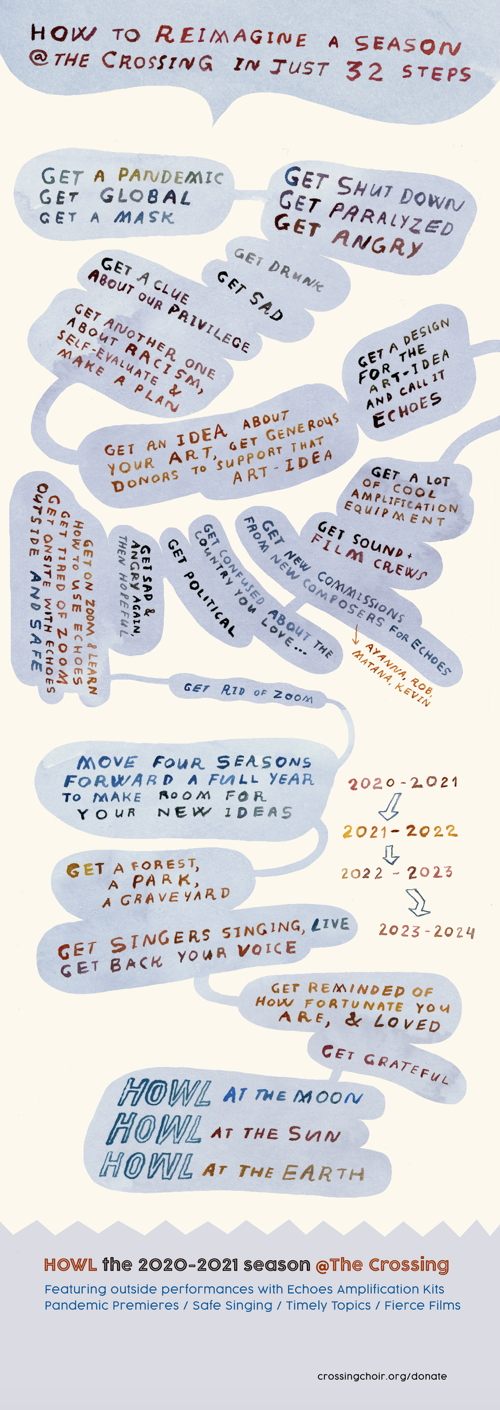 HOW TO REIMAGINE A SEASON
@THE CROSSING IN JUST 32 STEPS
GET A PANDEMIC
GET GLOBAL
GET A MASK
GET SHUT DOWN
GET PARALYZED
GET ANGRY
GET DRUNK
GET SAD
GET A CLUE
ABOUT OUR PRIVILEGE
GET ANOTHER ONE
ABOUT RACISM,
SELF-EVALUATE &
MAKE A PLAN
GET AN IDEA ABOUT
YOUR ART, GET GENEROUS
DONORS TO SUPPORT THAT
ART-IDEA
GET A DESIGN
FOR THE
ART-IDEA
AND CALL IT
ECHOES
GET A LOT
OF COOL
AMPLIFICATION
EQUIPMENT
GET SOUND+
FILM CREWS
GET NEW COMMISSIONS
FROM NEW COMPOSERS FOR ECHOES
AYANNA, ROB,
MATANA, KEVIN
GET CONFUSED ABOUT THE
COUNTRY YOU LOVE...
GET POLITICAL
GET SAD &
ANGRY AGAIN,
THEN HOPEFUL
GET ON ZOOM & LEARN
HOW TO USE ECHOES
GET TIRED OF ZOOM
GET ONSITE WITH ECHOES
OUTSIDE AND SAFE
GET RID OF ZOOM
MOVE FOUR SEASONS
FORWARD A FULL YEAR
TO MAKE ROOM FOR
YOUR NEW IDEAS
2020-2021
2021-2022
2022-2023
2023-2024
GET A FOREST,
A PARK,
A GRAVEYARD
GET SINGERS SINGING, LIVE
GET BACK YOUR VOICE
GET REMINDED OF
HOW FORTUNATE YOU
ARE, & LOVED
GET GRATEFUL
HOWL AT THE MOON
HOWL AT THE SUN
HOWL AT THE EARTH
HOWL the 2020-2021 season @The Crossing
Featuring outside performances with Echoes Amplification Kits
Pandemic Premieres / Safe Singing / Timely Topics / Fierce Films
crossingchoir.org/donate